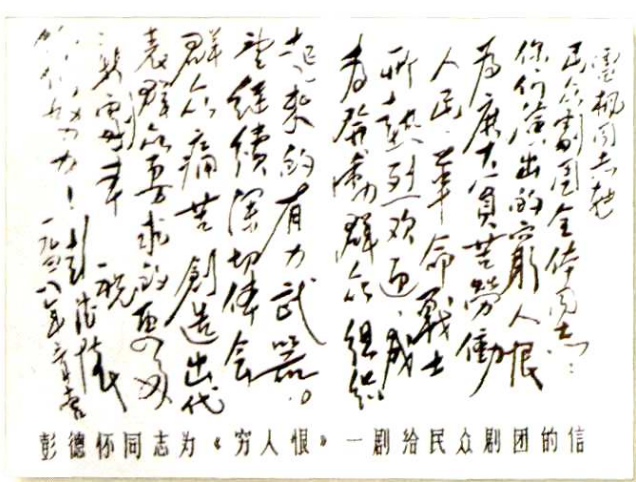 同志
民众劇团全体同志：
你们演出的窮人恨
为廣大貧苦勞働
人民、革命戰士
所熱烈欢迎，成
为發動群众組織
起来的有力武器。
望继续深切体会
群众痛苦創造出代
表群众要求的更多
新劇本 祝
你们努力！彭德怀
一九四八年
彭德怀同志为《穷人恨》一剧给民众剧团的信